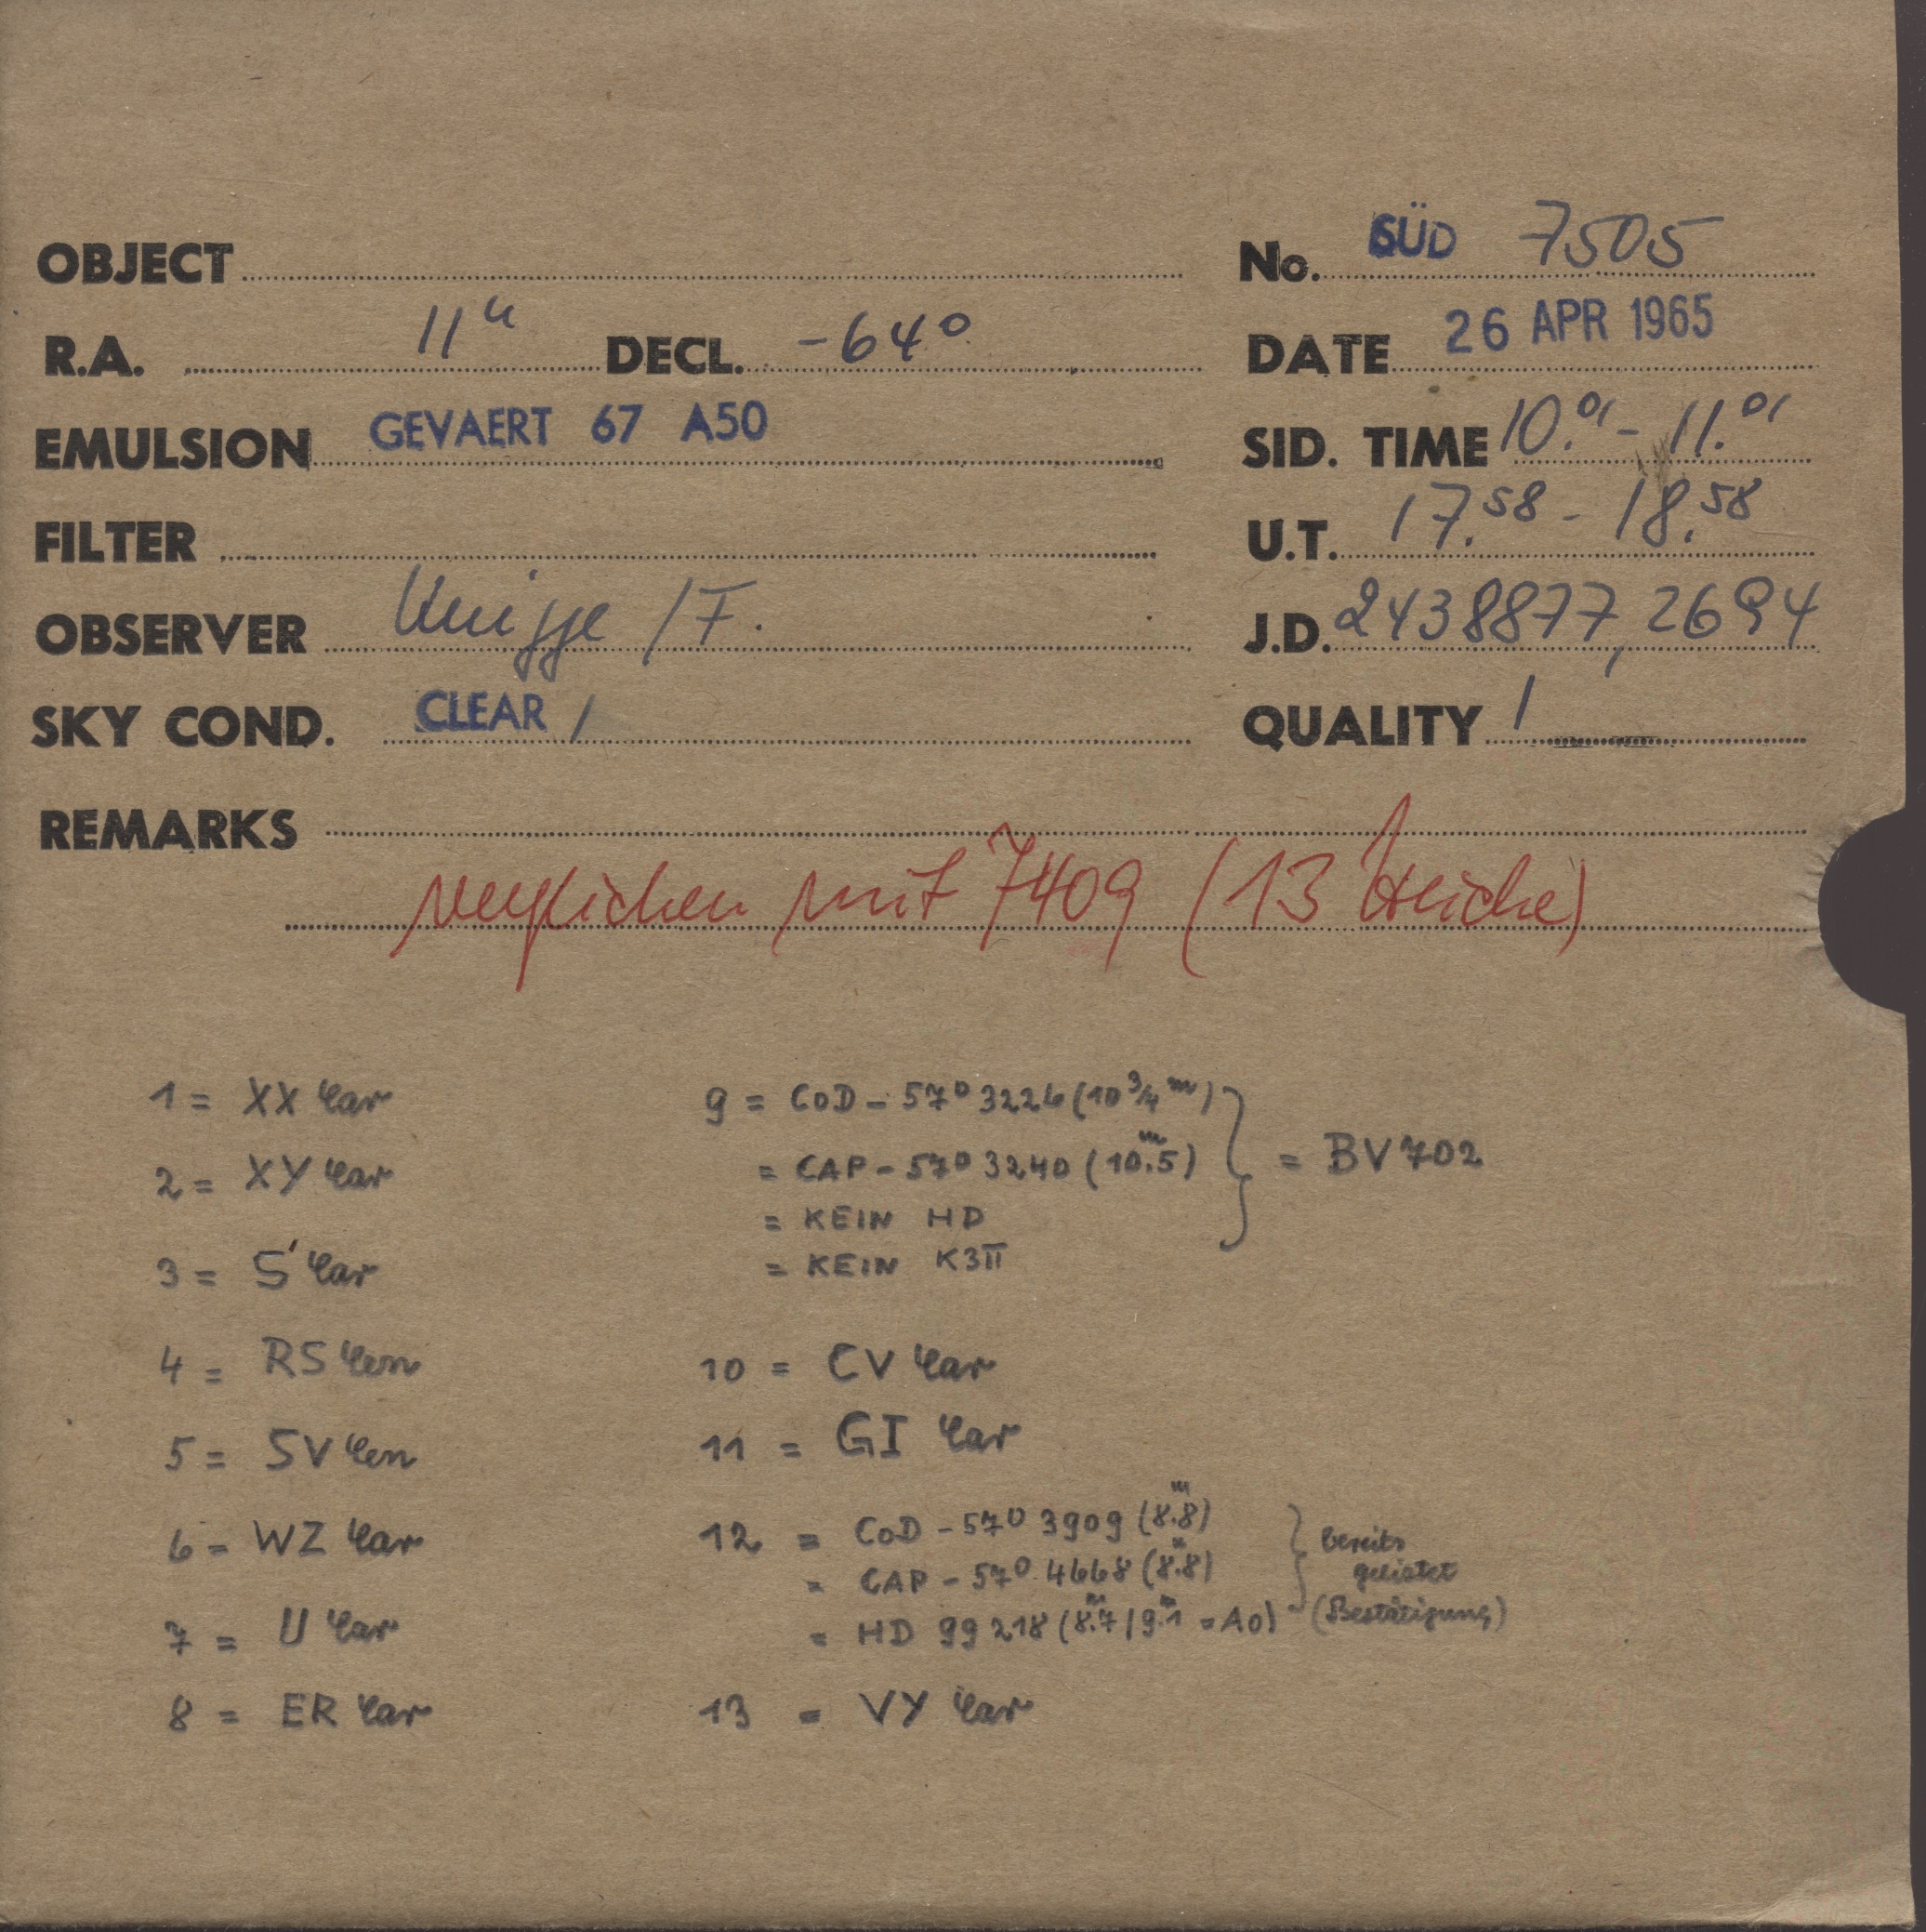 OBJECT No. SÜD 7505
R.A. 11ʰ DECL. -64° DATE 26 APR 1965
EMULSION GEVAERT 67 A50 SID. TIME 10.01 - 11.01
FILTER U.T. 17.58 - 18.58
OBSERVER Knigge / F. J.D. 2438877,2694
SKY COND. CLEAR / QUALITY 1
REMARKS
verglichen mit 7409 (13 Striche)
1 = XX Car
2 = XY Car
3 = S Car
4 = RS Cen
5 = SV Cen
6 = WZ Car
7 = U Car
8 = ER Car
9 = CoD - 57° 3226 (10 3/4 m)
= CAP - 57° 3240 (10.ᵐ5) } = BV 702
= KEIN HD
= KEIN K3II
10 = CV Car
11 = GI Car
12 = CoD - 57° 3909 (8.ᵐ8)
= CAP - 57° 4668 (8.ᵐ8) } bereits gelistet
= HD 99218 (8.ᵐ7 / 9.ᵐ1 = A0) (Bestätigung)
13 = VY Car